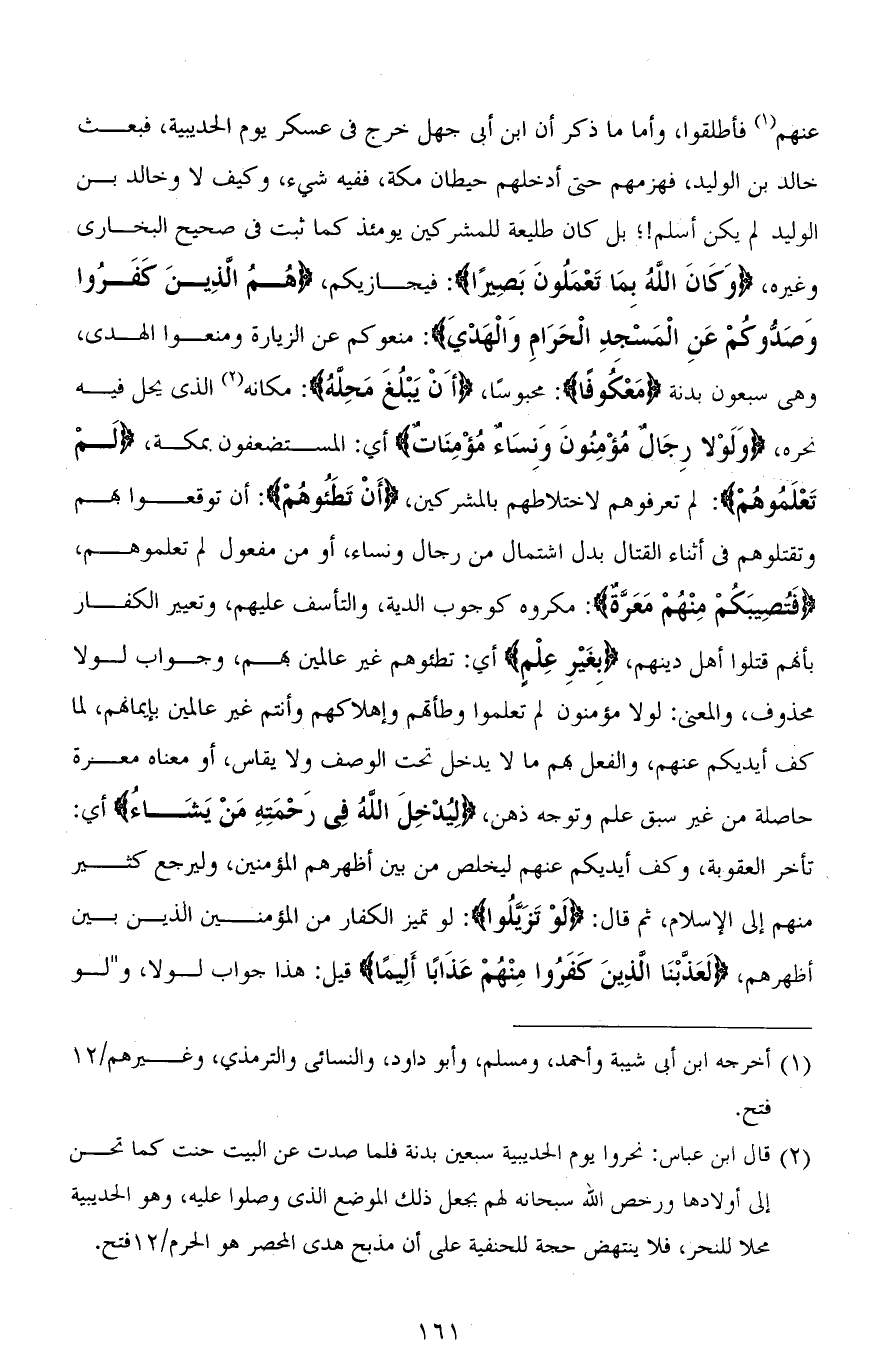 عنهم(١) فأطلقوا، وأما ما ذكر أن ابن أبى جهل خرج فى عسكر يوم الحديبية، فبعـــث
خالد بن الوليد، فهزمهم حتى أدخلهم حيطان مكة، ففيه شىء، وكيف لا وخالد بـــن
الوليد لم يكن أسلم!؛ بل كان طليعة للمشركين يومئذ كما ثبت فى صحيح البخــارى
وغيره، ﴿وَكَانَ اللَّهُ بِمَا تَعْمَلُونَ بَصِيرًا﴾: فيجـــازيكم، ﴿هُـــمُ الَّذِيـــنَ كَفَـــرُوا
وَصَدُّوكُمْ عَنِ الْمَسْجِدِ الْحَرَامِ وَالْهَدْيَ﴾: منعوكم عن الزيارة ومنعـــوا الهـــدى،
وهى سبعون بدنة ﴿مَعْكُوفًا﴾: محبوسًا، ﴿أَنْ يَبْلُغَ مَحِلَّهُ﴾: مكانه(٢) الذى يحل فيـــه
نحره، ﴿وَلَوْلا رِجَالٌ مُؤْمِنُونَ وَنِسَاءٌ مُؤْمِنَاتٌ﴾ أي: المســـتضعفون بمكـــة، ﴿لَـــمْ
تَعْلَمُوهُمْ﴾: لم تعرفوهم لاختلاطهم بالمشركين، ﴿أَنْ تَطَئُوهُمْ﴾: أن توقعـــوا بهـــم
وتقتلوهم فى أثناء القتال بدل اشتمال من رجال ونساء، أو من مفعول لم تعلموهـــم،
﴿فَتُصِيبَكُمْ مِنْهُمْ مَعَرَّةٌ﴾: مكروه كوجوب الدية، والتأسف عليهم، وتعيير الكفـــار
بأنهم قتلوا أهل دينهم، ﴿بِغَيْرِ عِلْمٍ﴾ أي: تطئوهم غير عالمين بهـــم، وجـــواب لـــولا
محذوف، والمعنى: لولا مؤمنون لم تعلموا وطأتهم وإهلاكهم وأنتم غير عالمين بإيمانهم، لما
كف أيديكم عنهم، والفعل بهم ما لا يدخل تحت الوصف ولا يقاس، أو معناه معـــرة
حاصلة من غير سبق علم وتوجه ذهن، ﴿لِيُدْخِلَ اللَّهُ فِى رَحْمَتِهِ مَنْ يَشَـــاءُ﴾ أي:
تأخر العقوبة، وكف أيديكم عنهم ليخلص من بين أظهرهم المؤمنين، وليرجع كثـــير
منهم إلى الإسلام، ثم قال: ﴿لَوْ تَزَيَّلُوا﴾: لو تميز الكفار من المؤمنـــين الذيـــن بـــين
أظهرهم، ﴿لَعَذَّبْنَا الَّذِينَ كَفَرُوا مِنْهُمْ عَذَابًا أَلِيمًا﴾ قيل: هذا جواب لـــولا، و"لـــو
(١) أخرجه ابن أبى شيبة وأحمد، ومسلم، وأبو داود، والنسائى والترمذي، وغـــيرهم/١٢
فتح.
(٢) قال ابن عباس: نحروا يوم الحديبية سبعين بدنة فلما صدت عن البيت حنت كما تحـــن
إلى أولادها ورخص الله سبحانه لهم بجعل ذلك الموضع الذى وصلوا عليه، وهو الحديبية
محلا للنحر، فلا ينتهض حجة للحنفية على أن مذبح هدى المحصر هو الحرم/١٢فتح.
١٦١